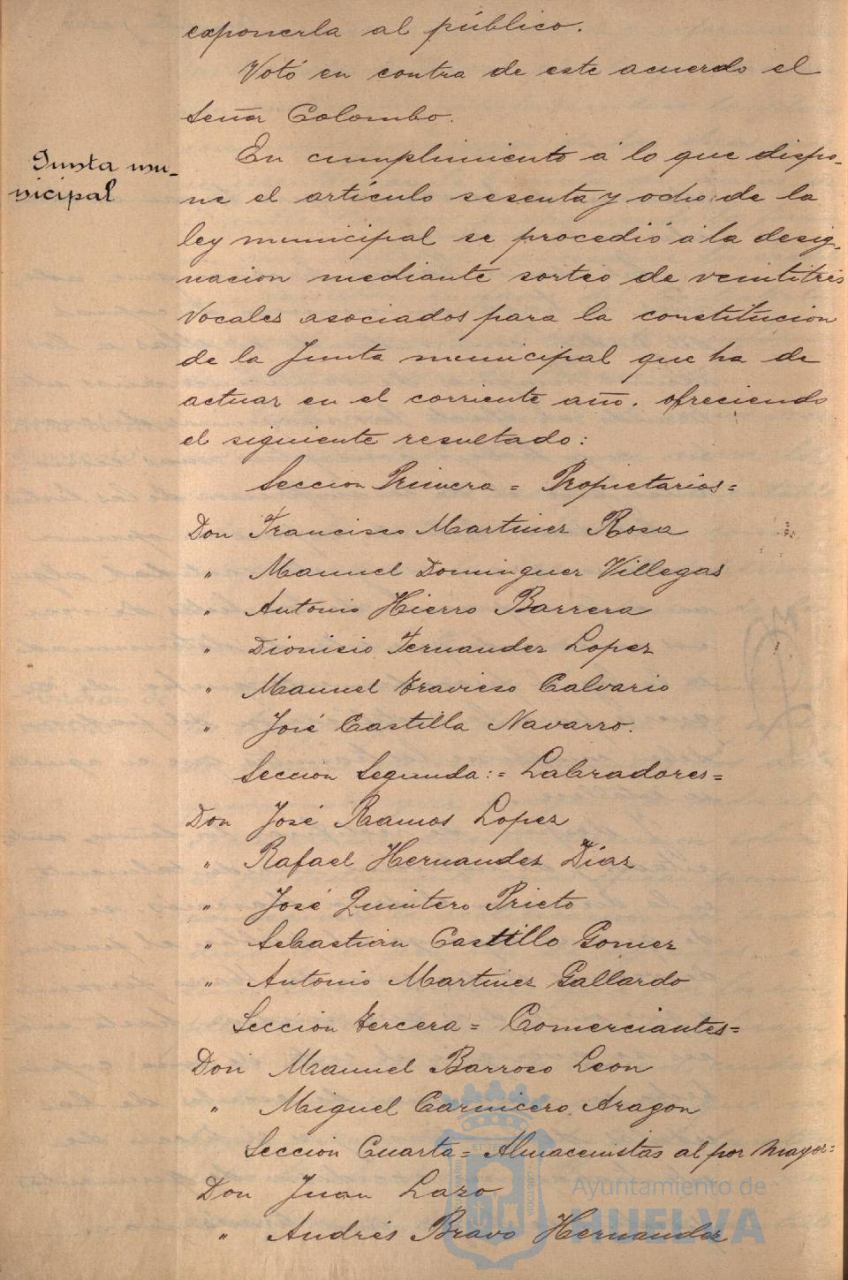 exponerla al público.
Votó en contra de este acuerdo el
Señor Colombo.
Junta mu-
nicipal
En cumplimiento á lo que dispo-
ne el artículo sesenta y ocho de la
ley municipal se procedió á la desig-
nacion mediante sorteo de veintitrés
Vocales asociados para la constitucion
de la Junta municipal que ha de
actuar en el corriente año. ofreciendo
el siguiente resultado:
Seccion Primera = Propietarios =
Don Francisco Martinez Rosa
" Manuel Dominguez Villegas
" Antonio Hierro Barrera
" Dionisio Fernandez Lopez
" Manuel Travieso Calvario
" José Castilla Navarro.
Seccion Segunda: = Labradores =
Don José Ramos Lopez
" Rafael Hernandez Díaz
" José Quintero Prieto
" Sebastian Castillo Gomez
" Antonio Martinez Gallardo
Seccion tercera = Comerciantes =
Don Manuel Barroso Leon
" Miguel Carnicero Aragon
Seccion Cuarta = Almacenistas al por mayor =
Don Juan Lazo
" Andrés Bravo Hernandez
Ayuntamiento de
HUELVA